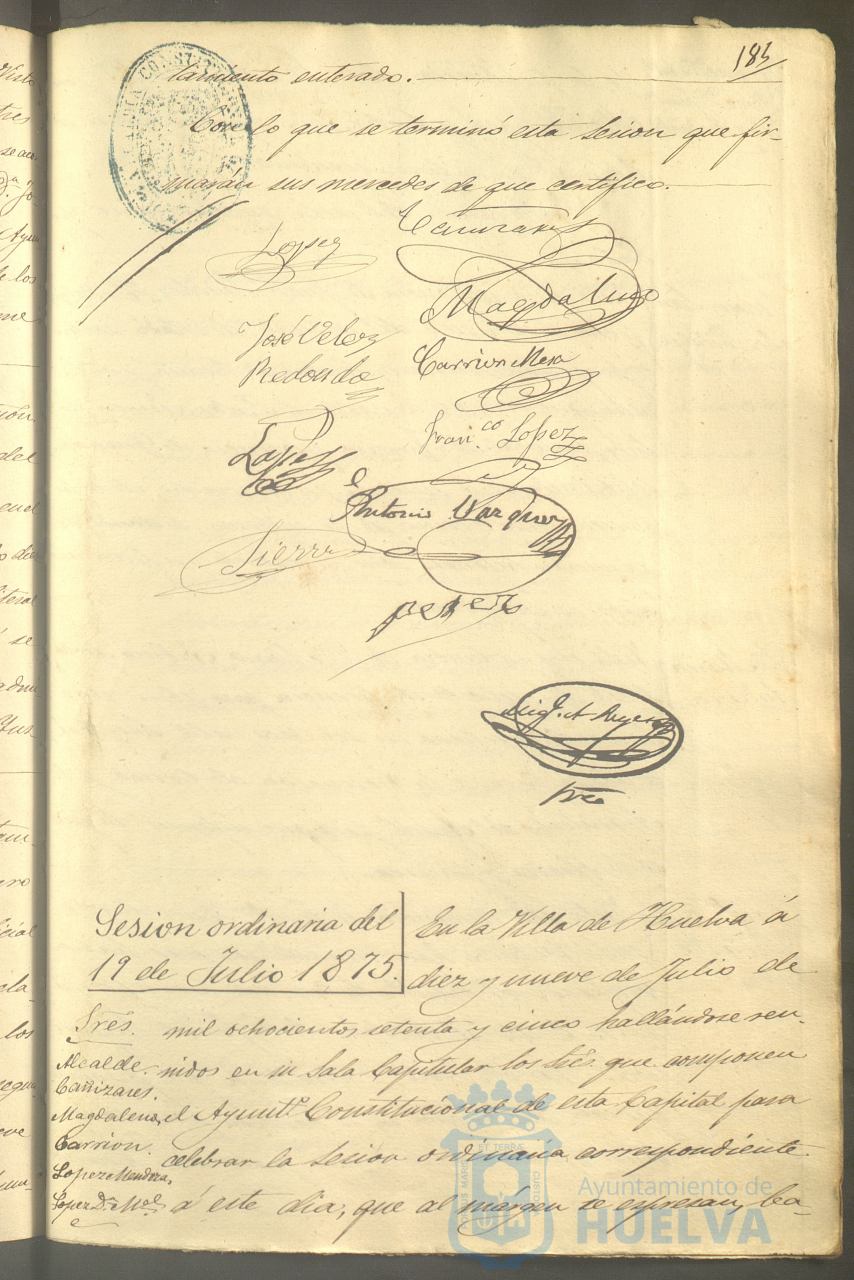 183
tamiento enterado.
Con lo que se terminó esta sesion que fir-
marán sus mercedes de que certifico.
Lopez
Cañizares
Magdaleno
José Velez
Redondo
Carrion Mesa
Lopez
Fran.co Lopez
Antonio Vazquez
Sierra
perez
Srio
Sesion ordinaria del
19 de Julio 1875.
En la Villa de Huelva á
diez y nueve de Julio de
mil ochocientos setenta y cinco hallándose reu-
nidos en su Sala Capitular los Sres que componen
el Ayuntº Constitucional de esta Capital para
celebrar la sesion ordinaria correspondiente
á este dia, que al márgen se espresan, ba-
Sres.
Alcalde.
Cañizares.
Magdaleno,
Carrion.
Lopez Mendoza,
Lopez D.n Mel
Ayuntamiento de
HUELVA